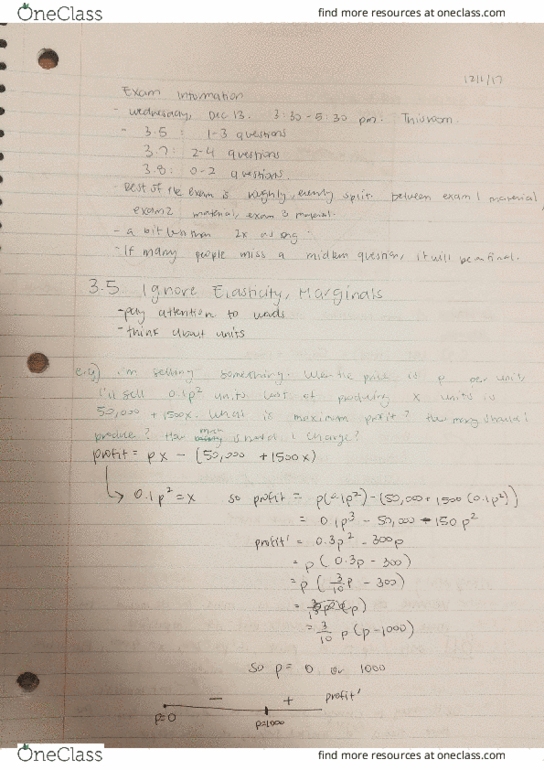 OneClass
find more resources at oneclass.com
12/1/17
Exam Information
- Wednesday, Dec 13. 3:30-5:30 pm. This room.
- 3.5 : 1-3 questions
3.7 : 2-4 questions
3.8 : 0-2 questions
- Rest of the exam is roughly evenly split between exam 1 material,
exam 2 material, exam 3 material.
- a bit less than 2x as long
- If many people miss a midterm question, it will be on final.
3.5 Ignore Elasticity, Marginals
- pay attention to words
- think about units
e.g) i'm selling something. When the price is p per unit,
I'll sell 0.1p² units cost of producing x units is
50,000 + 1500x. What is maximum profit? How many should i
produce? How much should i charge?
profit = px - (50,000 + 1500x)
↳ 0.1p² = x so profit = p(0.1p²) - (50,000 + 1500 (0.1p²))
= 0.1p³ - 50,000 - 150p²
profit' = 0.3p² - 300p
= p(0.3p - 300)
= p(3/10 p - 300)
= 3/10 p(p - 1000)
so p = 0 or 1000
- + profit'
p=0 p=1000
OneClass
find more resources at oneclass.com